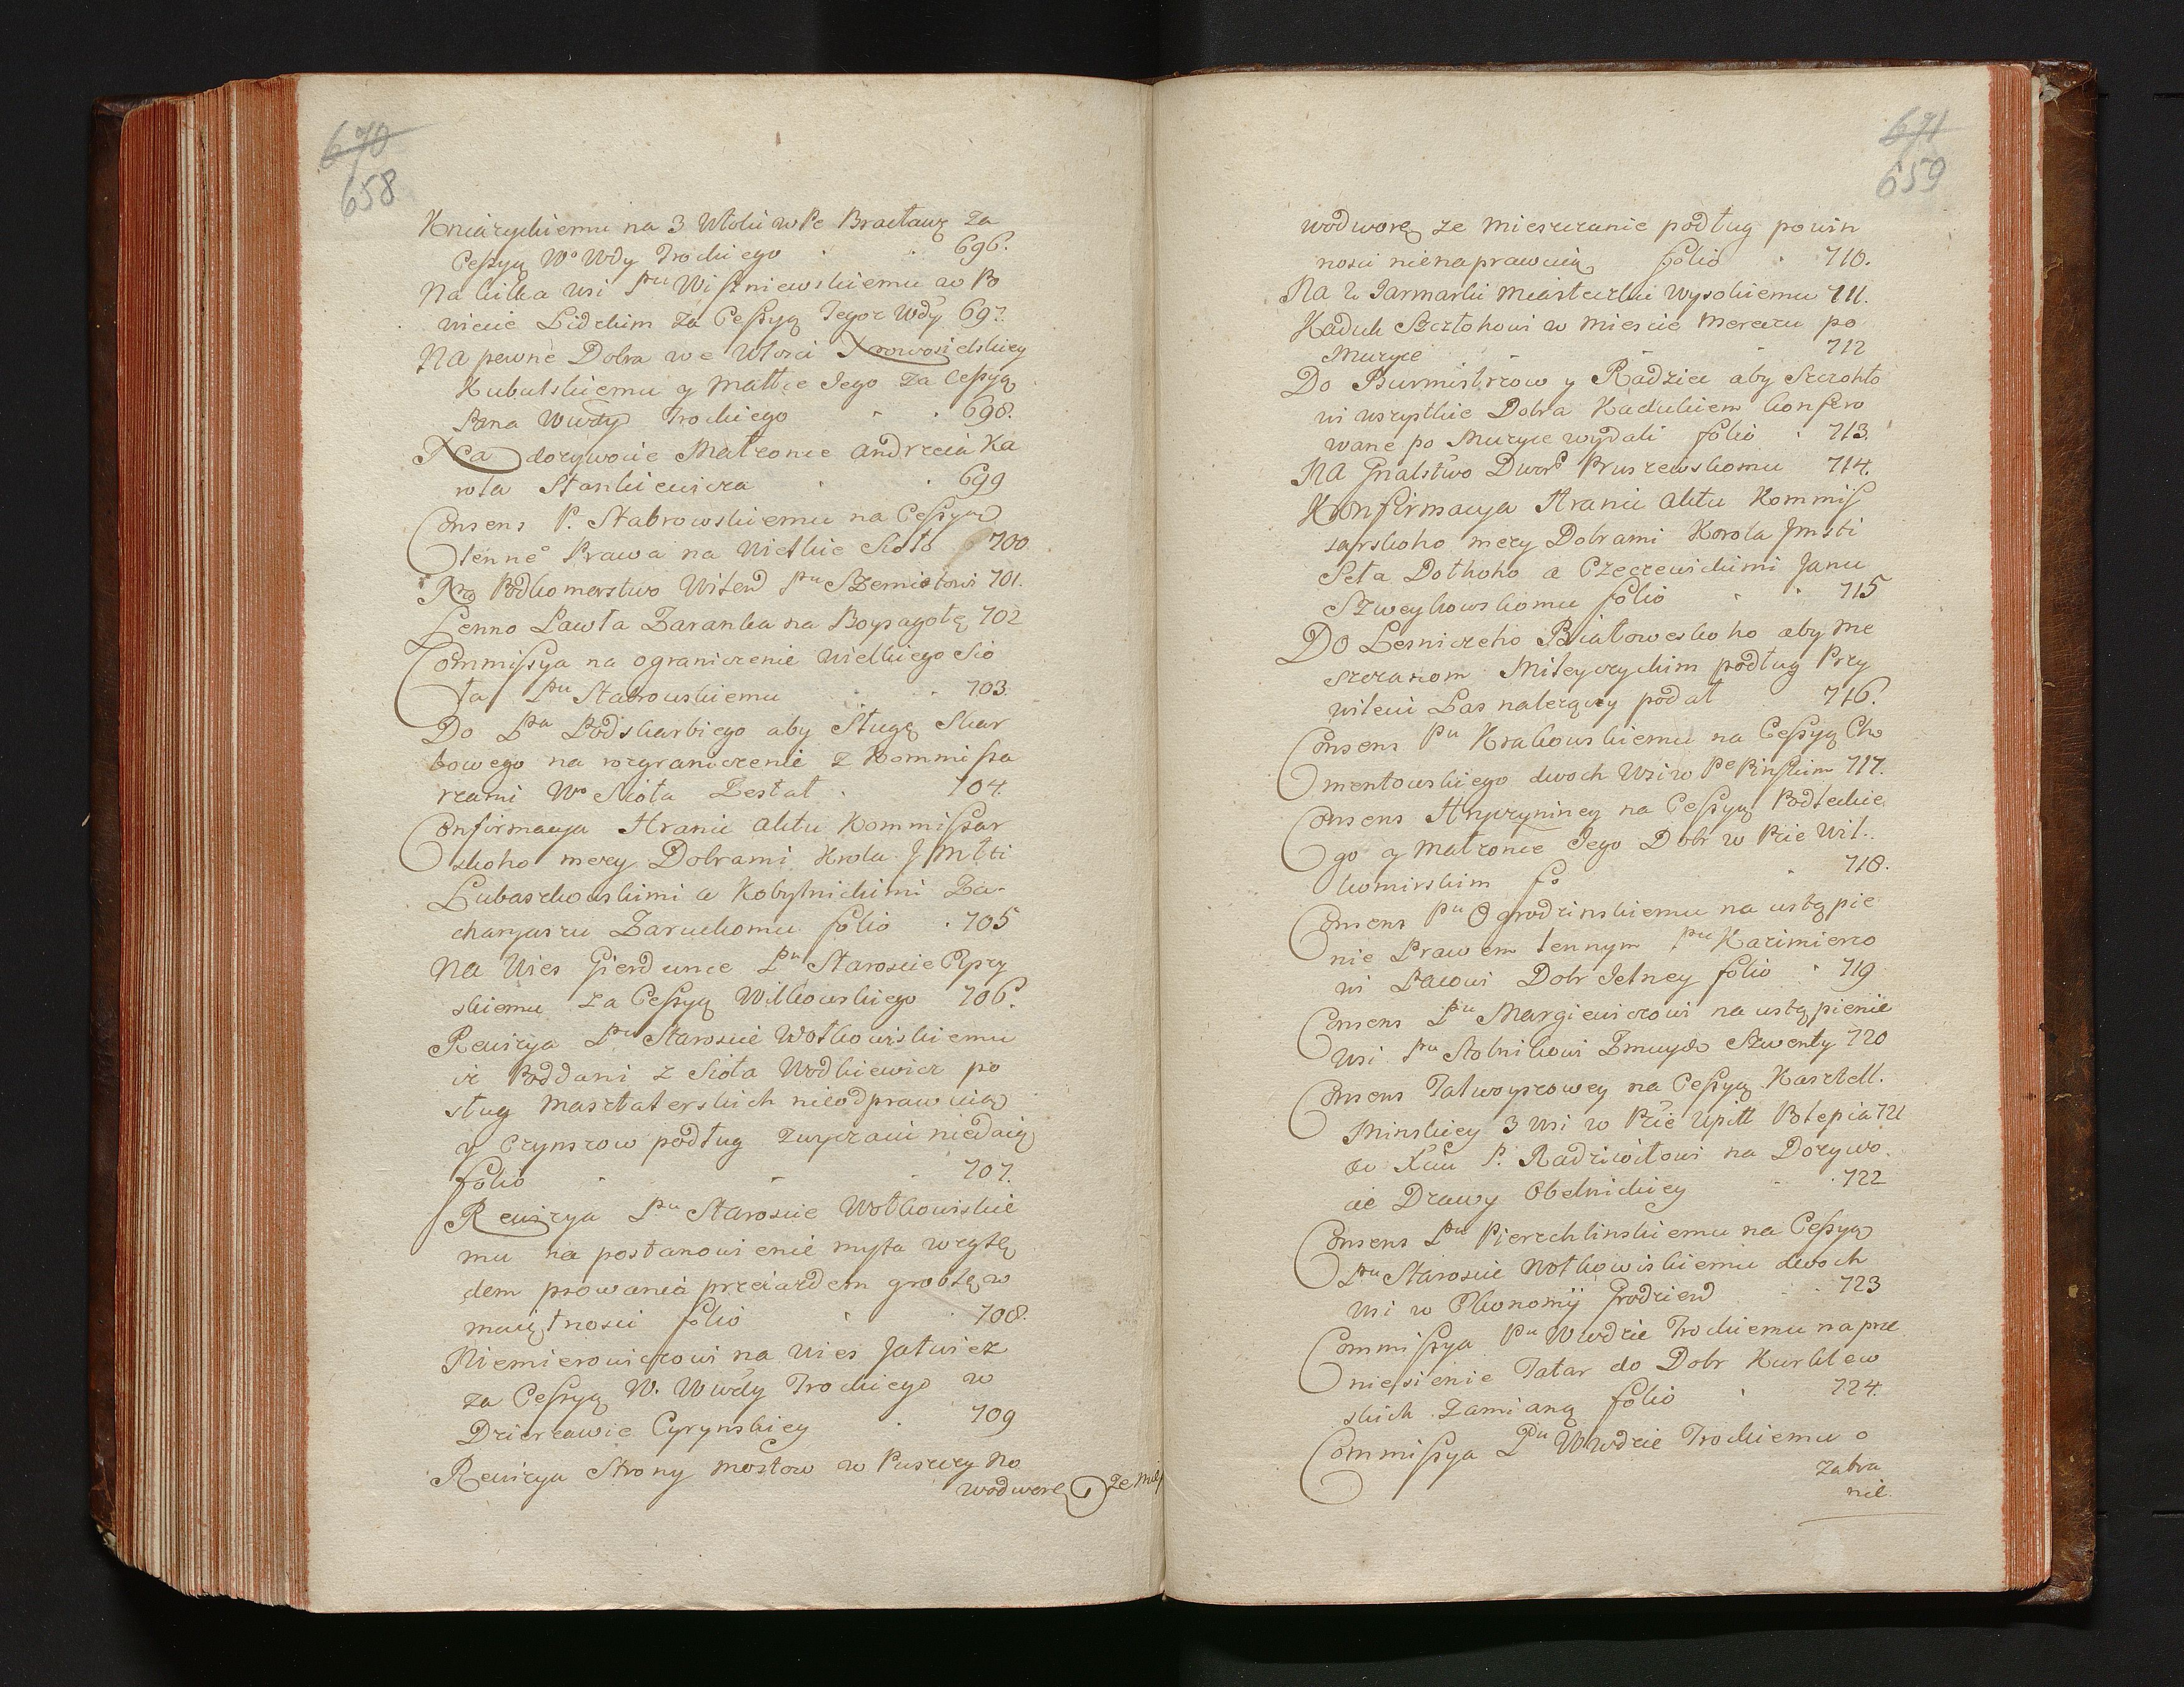 670
658
Kniażyckiemu na 3 Włoki w Pe Bracław: za
Cessyą Wo Wdy Trockiego 696.
Na kilka wsi Pu Wiszniewskiemu w Po
wiecie Lidzkim za Cessyą Tegoż Wdy 697.
Na pewne Dobra we Włosci
Kubulskiemu y Małce Jego za Cessyą
Pana Wwdy Trockiego 698.
Na dożywocie Małżonce Andrzeia Ka
rola Stankiewicza 699
Consens P. Stabrowskiemu na Cessyą
lenne Prawa na Wielkie Sioło 700
Na Podkomorstwo Witeb Pu Szemiotowi 701.
Lenno Pawła Baranka na Boysagołę 702
Commissya na ograniczenie Wielkiego Sio
ła Pu Stabrowskiemu 703.
Do Pa Podskarbiego aby Sługę Skar
bowego na rozgraniczenie z Kommissa
rzami Wo Sioła Zesłał 704.
Confirmacya Hranic aktu Kommissar
skoho mezy Dobrami Krola J Mści
Lubaszkowskimi a Kobylnickimi Za-
charyaszu Zaruckomu folio 705
Na Wies Gierdunce Pu Staroscie
skiemu za Cessyą Wilkowskiego 706.
Rewizya Pu Staroscie Wołkowiskiemu
iż Poddani z Sioła Wodkiewicz po
sług Masztalerskich nieodprawuią
y Czynszow podług zwyczaiu niedaią
folio 707.
Rewizya Pu Staroscie Wołkowiskie
mu na postanowienie myta wzglę
dem psowania przeiazdem groblę w
maiętnosci folio 708.
Niemierowiczowi na Wies Jatwiez
za Cessyą W. Wwdy Trockiego w
Dzierzawie Cyrynskiey 709
Rewizya Strony mostow w Puszczy No
wodworę ze mie
671
659
wodworę ze Mieszczanie podług powin
nosci nienaprawuią folio 710.
Na 2 Jarmarki Miasteczku Wysokiemu 711.
Kaduk Szczłohowi w Miescie Mereczu po
Muzyce 712
Do Burmistrzow y Radziec aby Szczohło
wi wszystkie Dobra Kadukiem konfero
wane po Muzyce wydali folio 713.
Na Gnalstwo Dworo Pruszewskomu 714.
Konfirmacya Hranic aktu Kommis
sarskoho mezy Dobrami Korola Jmsti
Seła Dołhoho a Czeczewickimi Janu
Szweykowskomu folio 715
Do Lesniczeho Białoweskoho aby Me
szczanom Mileyczyckim podług Przy
wileiu Las należący podał 716.
Consens Pu Krakowskiemu na Cessyą Chо
mentowskiego dwoch Wsi w Pe Pinskim 717.
Consens Hryczyniney na Cessyą Podleckie
go y małżonce Jego Dobr w Pcie Wil.
komirskim fo 718.
Consens Pu Ogrodzinskiemu na ustąpie
nie Prawem lennym Pu Kazimierzo
wi Pacowi Dobr Jelney folio 719
Consens Pu Margiewiczowi na ustąpienie
Wsi Pu Stolnikowi Zmuydz Szwenty 720
Consens Talwoyszowey na Cessyą Kasztell.
Minskiey 3 Wsi w Pcie Upitt Polepia 721
P. Radziwiłowi na Dożywo
cie Dzawy Obelnickiey 722
Consens Pu Pierzchlinskiemu na Cessyą
Pu Staroscie Wołkowiskiemu dwoch
Wsi w Ekonomij Grodzien 723
Commissya Pu Wwdzie Trockiemu na prze
niesienie Tatar do Dobr Kurklew
skich zamianą folio 724.
Commissya Pu Wwdzie Trockiemu o
zabra
nie